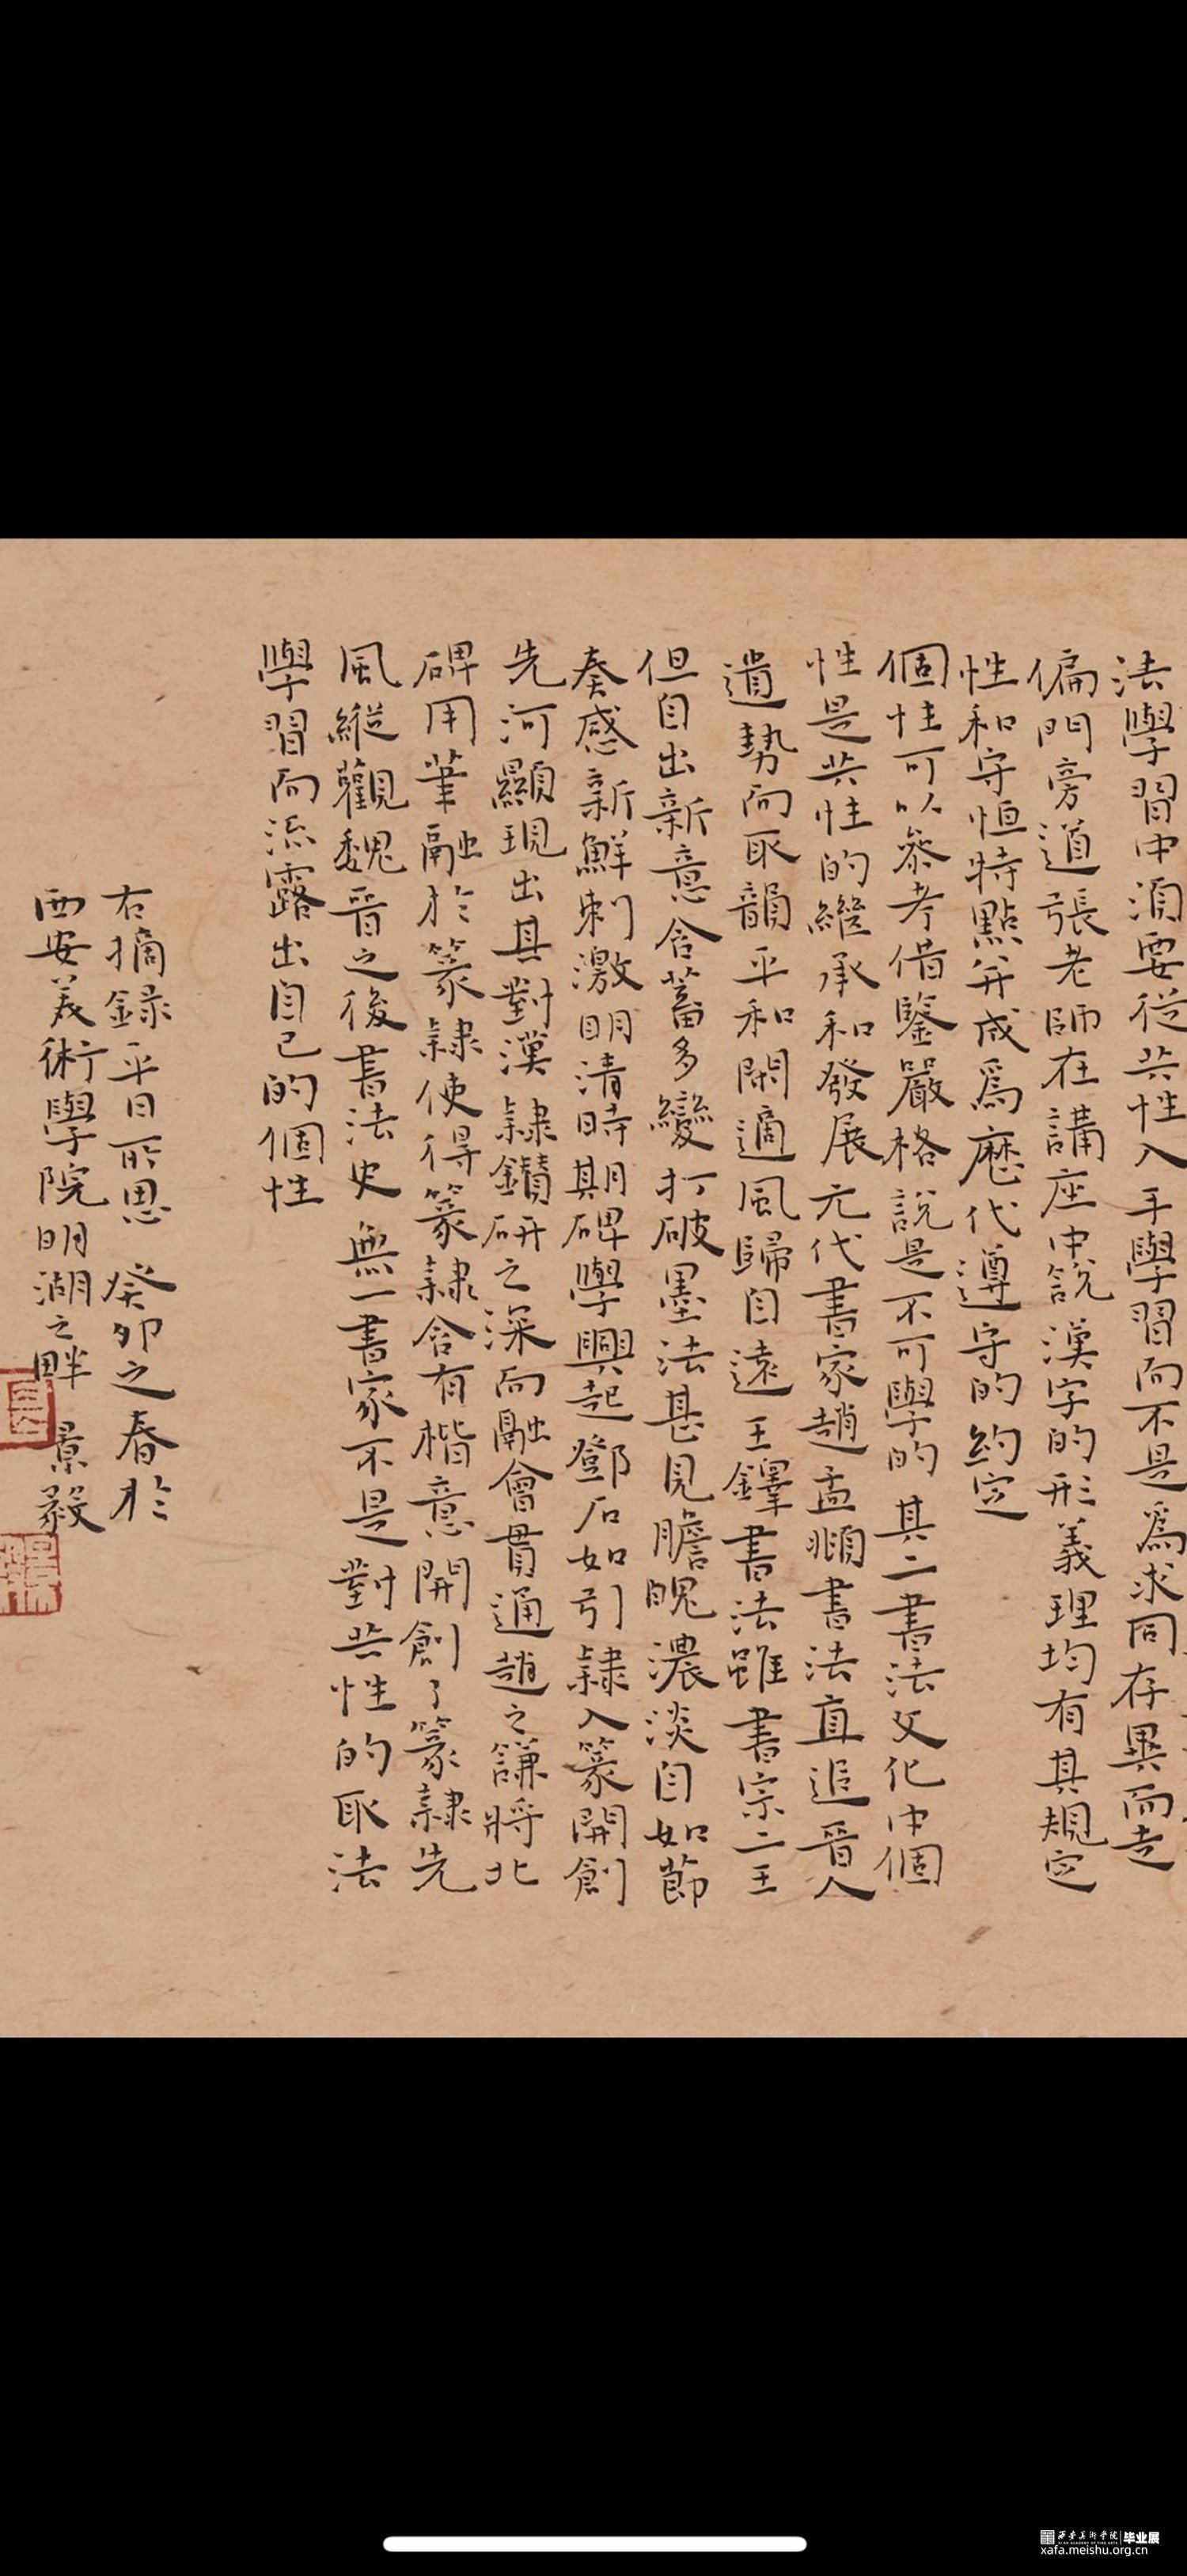 法學習中須要從共性入手學習而不是爲求同存異而走
偏門旁道張老師在講座中說漢字的形義理均有其規定
性和守恒特點并成爲歷代遵守的約定
個性可以參考借鑒嚴格說是不可學的其二書法文化中個
性是共性的繼承和發展元代書家趙孟頫書法直追晉人
遺勢而取韻平和閑適風歸自遠王鐸書法雖書宗二王
但自出新意含蓄多變打破墨法甚見膽魄濃淡自如節
奏感新鮮刺激明清時期碑學興起鄧石如引隸入篆開創
先河顯現出其對漢隸鑽研之深而融會貫通趙之謙將北
碑用筆融於篆隸使得篆隸含有楷意開創了篆隸先
風縱觀魏晉之後書法史無一書家不是對共性的取法
學習而流露出自己的個性
右摘録平日所思癸卯之春於
西安美術學院明湖之畔 景毅
西安美術學院 毕业展
XI'AN ACADEMY OF FINE ARTS
xafa.meishu.org.cn